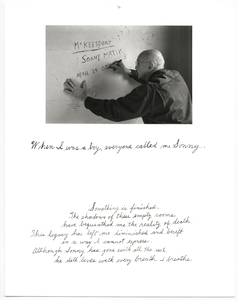 McKEESPORT
SONNY MATIK
When I was a boy, everyone called me Sonny...
Something is finished.
The shadows of these empty rooms
have bequeathed me the reality of death.
This legacy has left me diminished and bereft
in a way I cannot express.
Although Sonny has gone with all the rest,
he still lives with every breath I breathe.